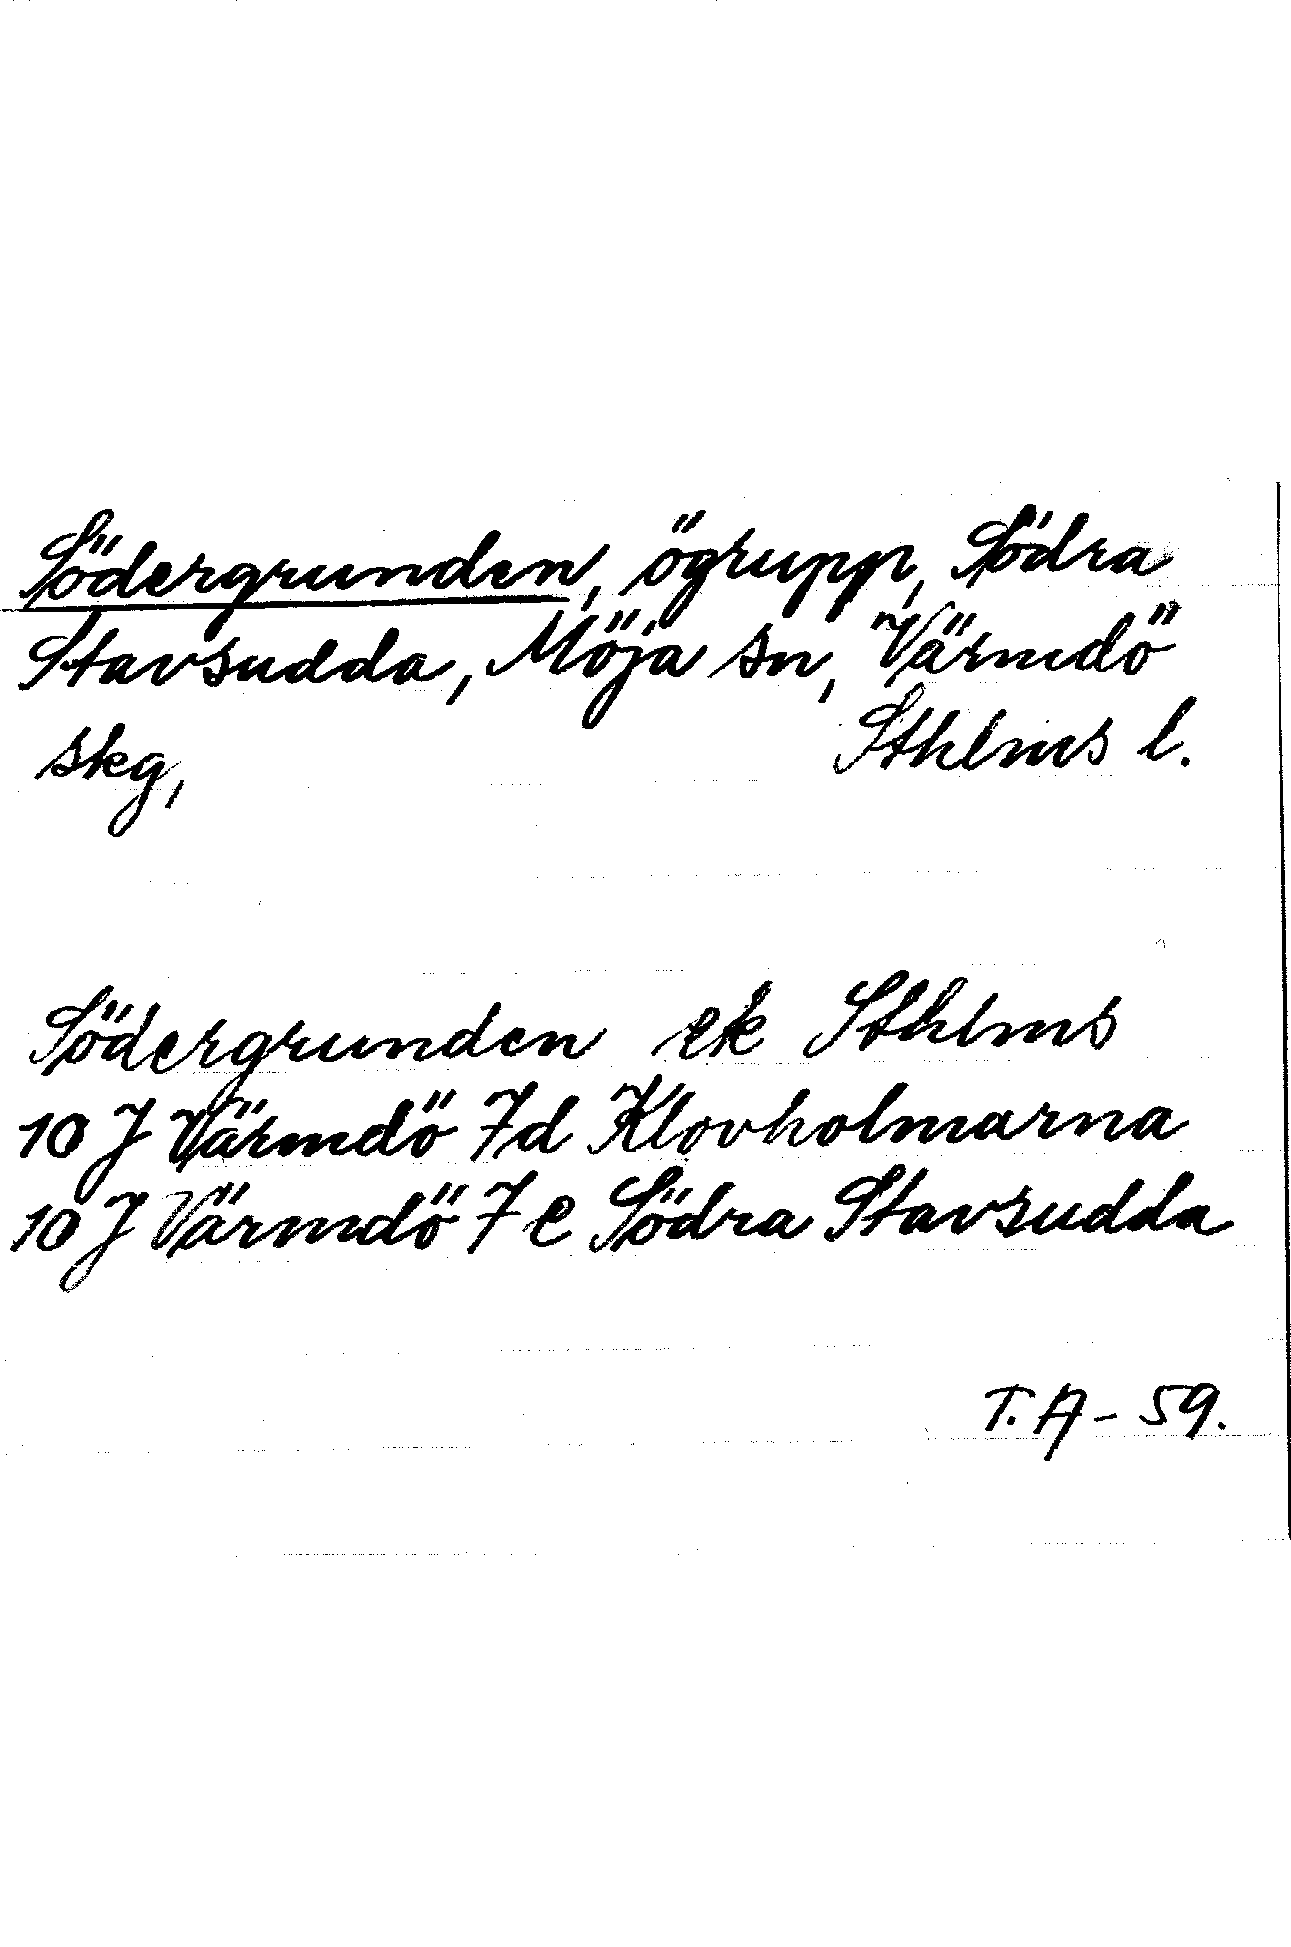 Södergrunden, ögrupp, Södra
Stavsudda, Möja sn, Värmdö
skg, Sthlms l.
Södergrunden ek Sthlms
10 J Värmdö 7d Klovholmarna
10 J Värmdö 7 e Södra Stavsudda
T. A - 59.